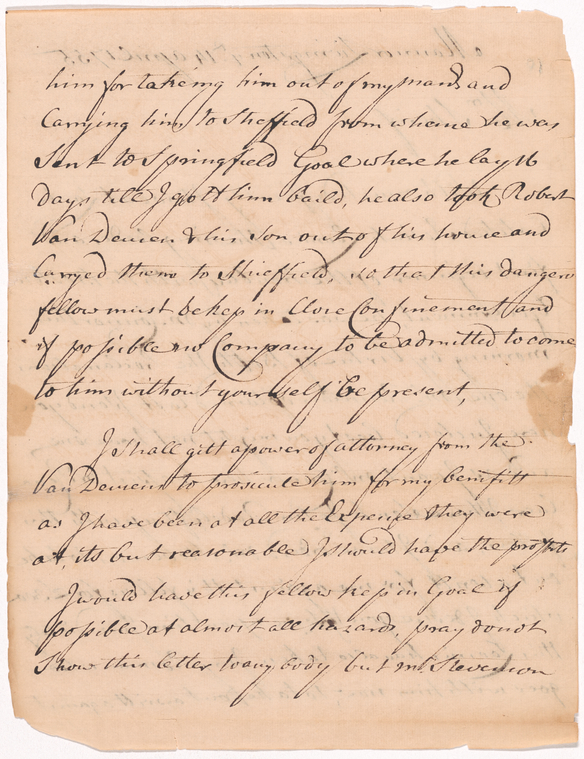 him for takeing him out of my man? and
Carrying him to Sheffield from whence he was
Sent to Springfield Goal where he lay 16
Days till I gott him baild, he also took Robert
Van Deusen & his Son out of his house and
Carryed them to Sheffield, so that this danger
fellow must be kep in Close Confinement and
if possible no Company to be admitted to come
to him without yourself be present,
I shall gitt a power of attorney from the
Van Deusens to prosicute him for my benifitt
as I have been at all the Expence they were
at, its but reasonable I should have the profits
I would have this fellow kep in Goal if
possible at almost all hazards, pray do not
Show this letter to any body but mr. Stevenson